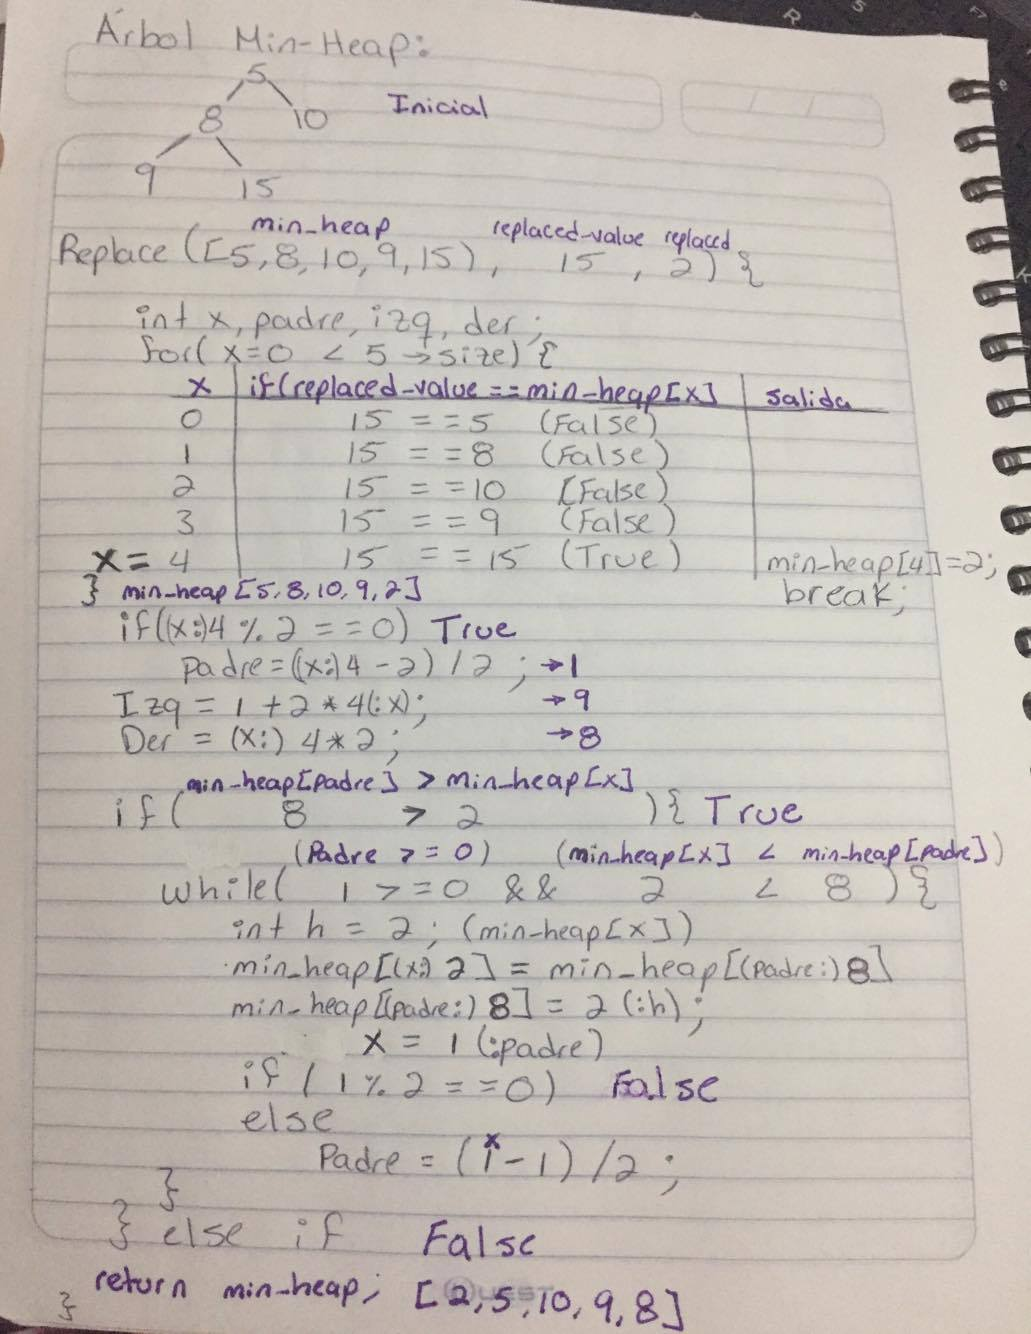 Árbol Min-Heap:
5
8 10 Inicial
9 15
min_heap replaced-value replaced
Replace ([5,8,10,9,15), 15 , 2) {
int x, padre, izq, der;
for( x=0 < 5 →size) {
x if(replaced-value == min-heap[x] salida
0 15 == 5 (False)
1 15 == 8 (False)
2 15 == 10 [False)
3 15 == 9 (False)
x = 4 15 == 15 (True) min-heap[4]=2;
} min-heap[5,8,10,9,2] break;
if((x:)4 % 2 == 0) True
padre = ((x:)4 - 2) / 2 ; →1
Izq = 1 + 2 * 4(:x); →9
Der = (x:) 4 * 2 ; →8
min-heap[padre] > min-heap[x]
if( 8 > 2 ){ True
(Padre >= 0) (min-heap[x] < min-heap[padre])
while( 1 >= 0 && 2 < 8 ) {
int h = 2; (min-heap[x])
min_heap[(x:) 2] = min_heap[(padre:) 8]
min-heap[(padre:) 8] = 2 (:h) ;
x = 1 (:padre)
if ( 1 % 2 == 0) False
else
x
Padre = (1 - 1) / 2 ;
}
} else if False
return min-heap; [2,5,10,9,8]
}